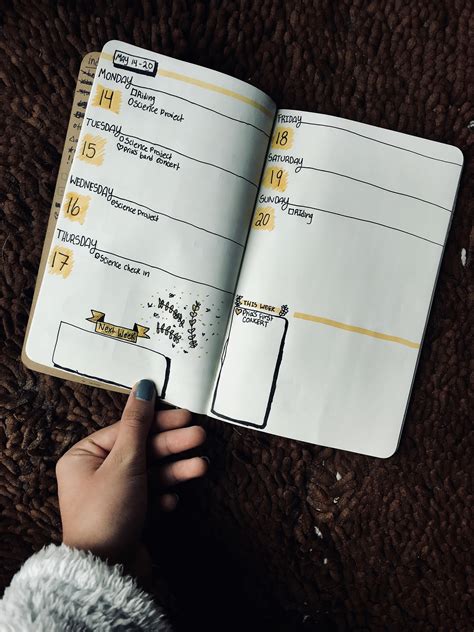 MAY 14-20
MONDAY
14
Riding
Science Project
TUESDAY
15
Science Project
band concert
WEDNESDAY
16
Science Project
THURSDAY
17
Science check in
Next Week
FRIDAY
18
SATURDAY
19
SUNDAY
20
Riding
THIS WEEK
First
CONCERT